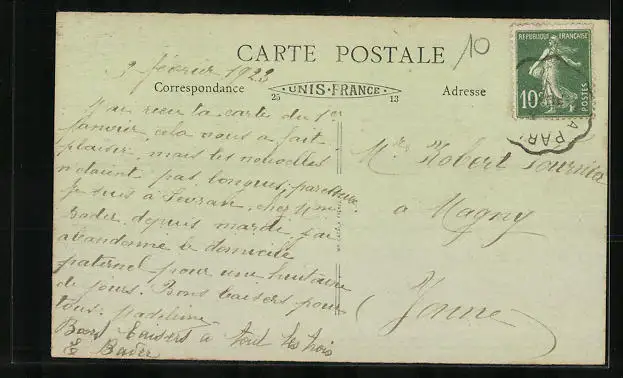 CARTE POSTALE
10
9 février 1923
Correspondance
UNIS-FRANCE
25
13
Adresse
REPUBLIQUE FRANÇAISE
10c
POSTES
A PAR
J'ai reçu ta carte du 1er
Janvier, cela nous a fait
plaisir, mais les nouvelles
n'étaient pas longues,
Je suis à Sevran, chez Mme
Bader, depuis mardi, j'ai
abandonné le domicile
paternel pour une huitaine
de jours. Bons baisers pour
tous. Madeleine
Bons baisers a tout les trois
E Bader
Robert
a Magny
Yonne